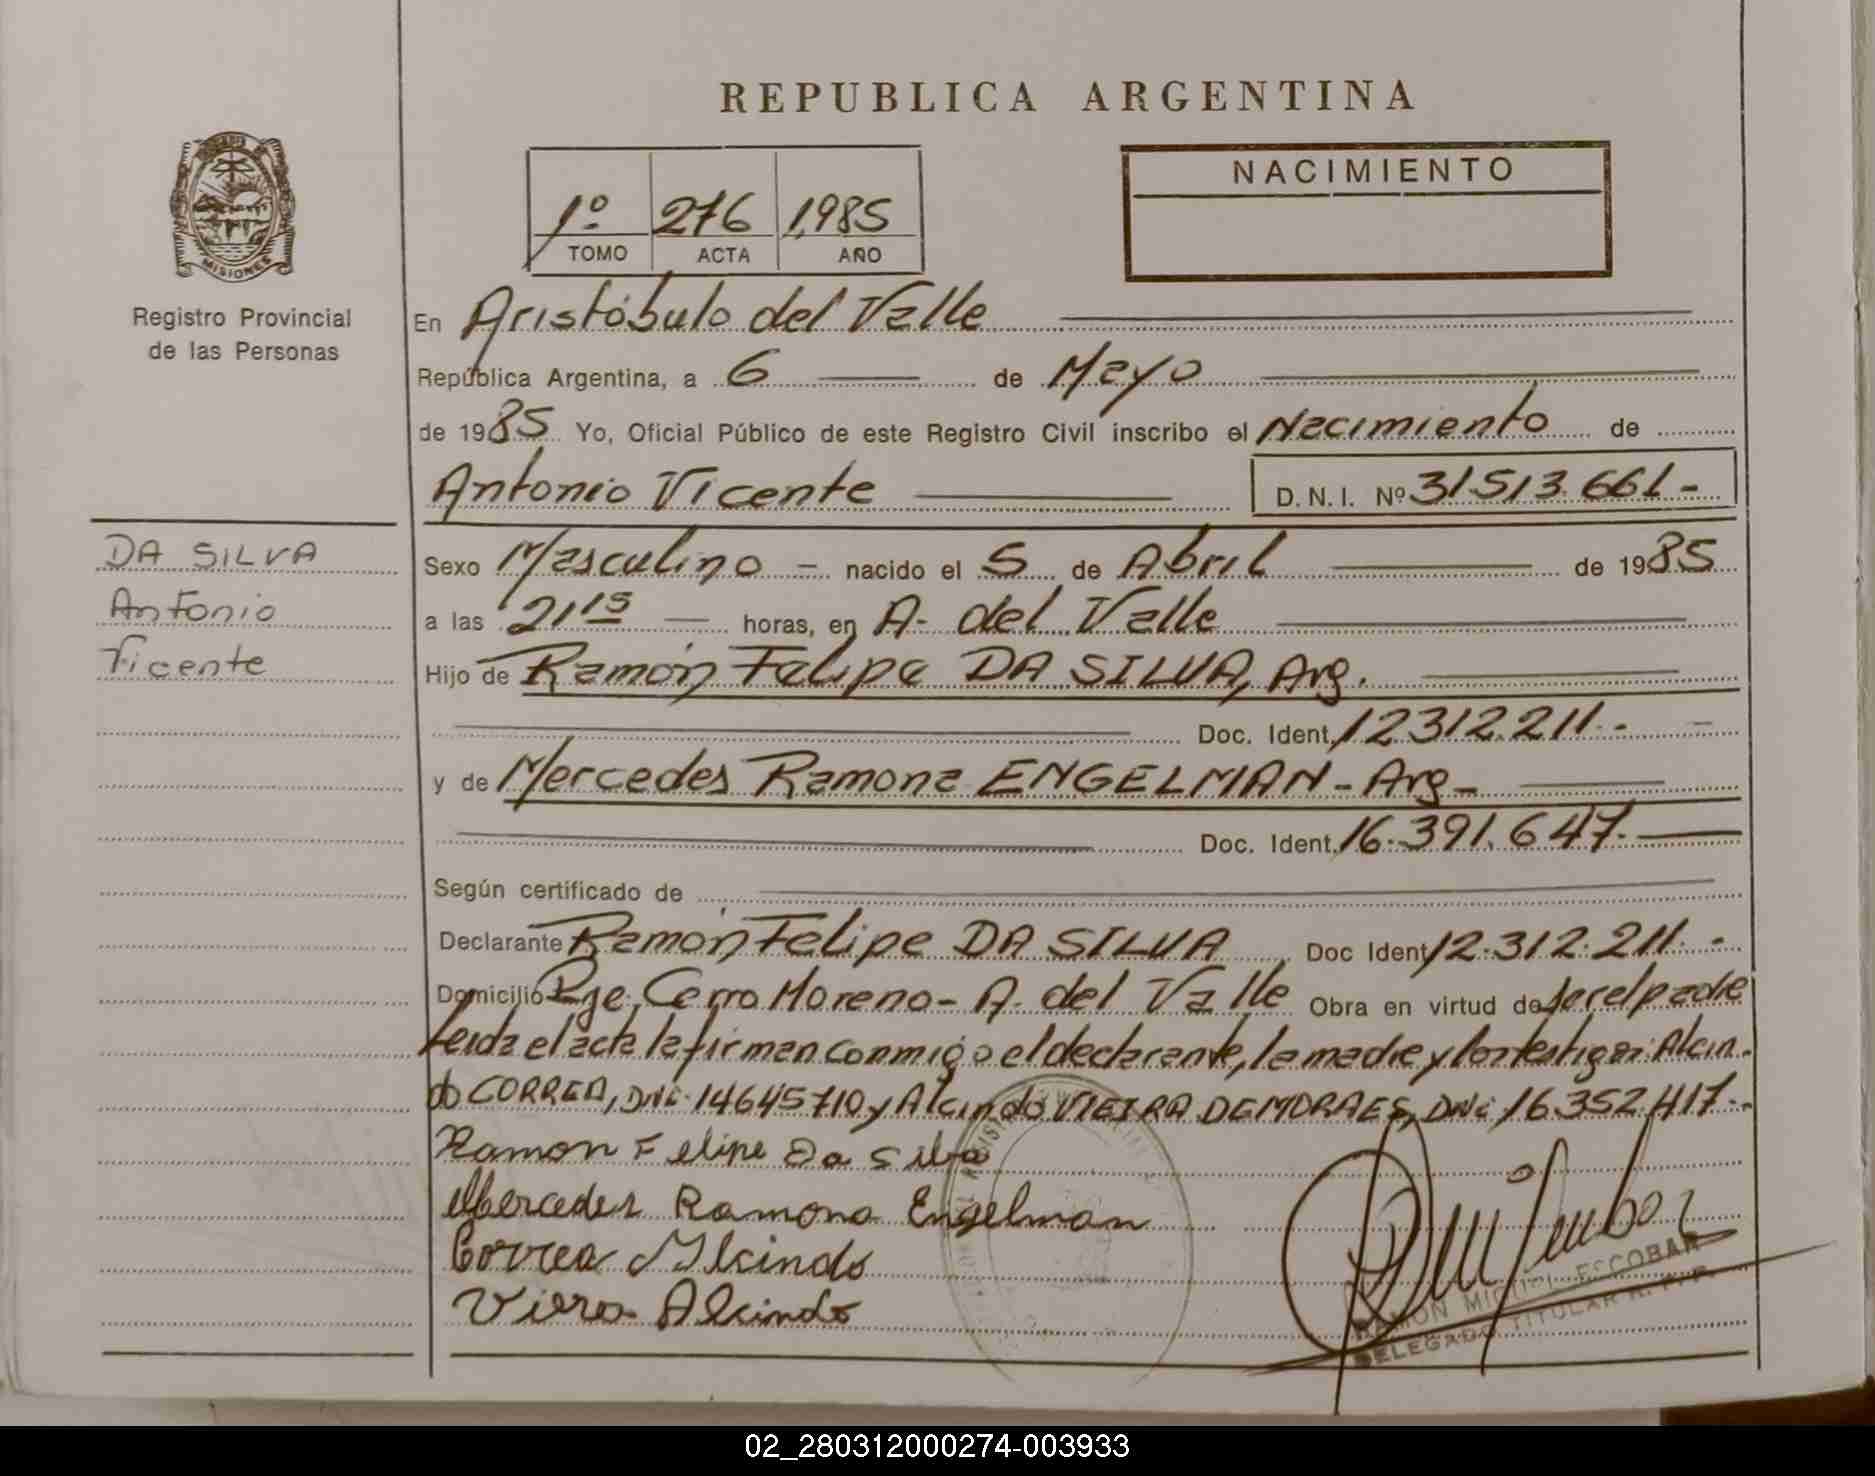 REPUBLICA ARGENTINA
MISIONES
Registro Provincial
de las Personas
1º 276 1985
TOMO ACTA AÑO
NACIMIENTO
En Aristóbulo del Valle
República Argentina, a 6 de Mayo
de 1985 Yo, Oficial Público de este Registro Civil inscribo el Nacimiento de
Antonio Vicente D. N. I. Nº 31.513.661-
DA SILVA
Antonio
Vicente
Sexo Masculino - nacido el 5 de Abril de 1985
a las 21 15 horas, en A. del Valle
Hijo de Ramón Felipe DA SILVA, Arg.
Doc. Ident. 12.312.211.-
y de Mercedes Ramona ENGELMAN - Arg -
Doc. Ident. 16.391.647.
Según certificado de
Declarante Ramón Felipe DA SILVA Doc Ident 12.312.211.-
Domicilio Pje. Cerro Moreno - A. del Valle Obra en virtud de ser el padre
Leida el acta la firman conmigo el declarante, la madre y los testigos: Alcin-
do CORREA, DNI. 14645710 y Alcindo VIEIRA DE MORAES, DNI 16.352.417.-
Ramon Felipe Da Silva
Mercedes Ramona Engelman
Correa Alcindo
Viera Alcindo
RAMON MIGUEL ESCOBAR
DELEGADO TITULAR R. P. P.
02_280312000274-003933